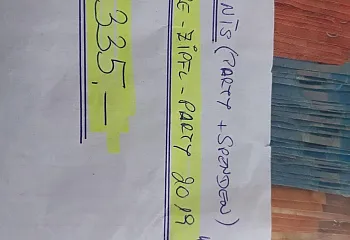 NTS (PARTY + SPENDEN)
E - ZIPFL - PARTY 2019
335,—